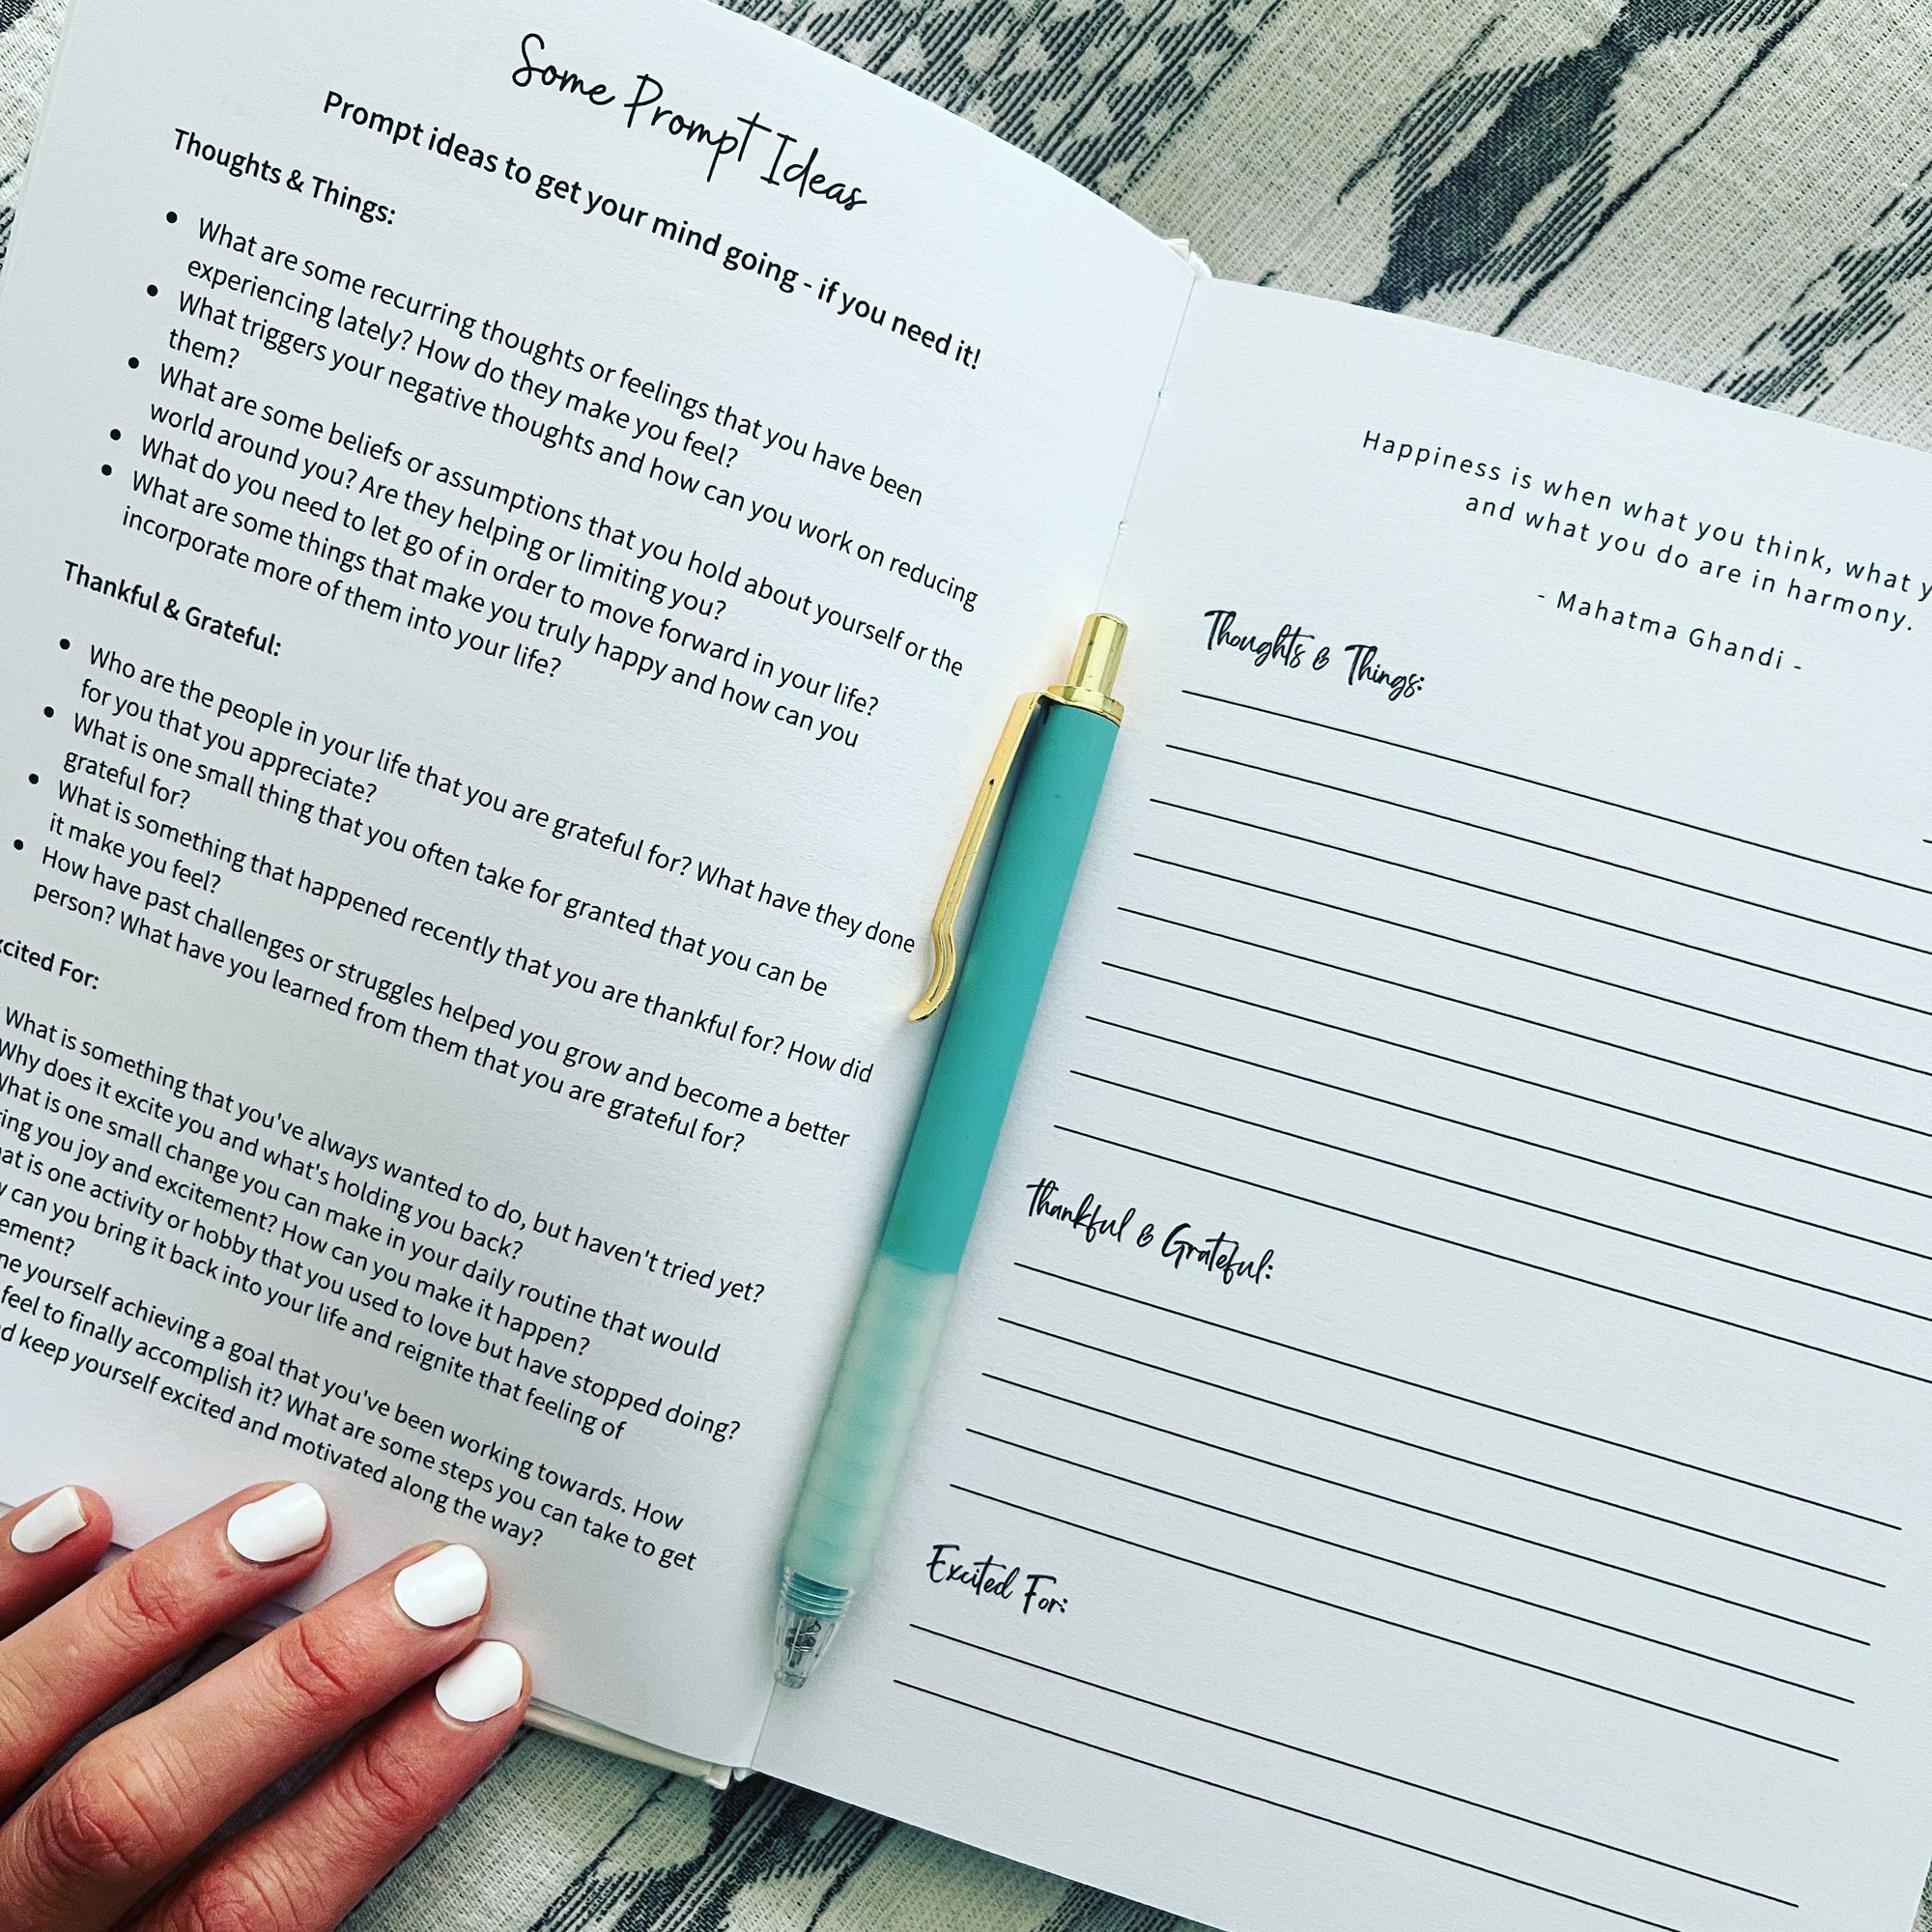 Some Prompt Ideas
Prompt ideas to get your mind going - if you need it!
Thoughts & Things:
• What are some recurring thoughts or feelings that you have been
experiencing lately? How do they make you feel?
• What triggers your negative thoughts and how can you work on reducing
them?
• What are some beliefs or assumptions that you hold about yourself or the
world around you? Are they helping or limiting you?
• What do you need to let go of in order to move forward in your life?
• What are some things that make you truly happy and how can you
incorporate more of them into your life?
Thankful & Grateful:
• Who are the people in your life that you are grateful for? What have they done
for you that you appreciate?
• What is one small thing that you often take for granted that you can be
grateful for?
• What is something that happened recently that you are thankful for? How did
it make you feel?
• How have past challenges or struggles helped you grow and become a better
person? What have you learned from them that you are grateful for?
cited For:
What is something that you've always wanted to do, but haven't tried yet?
Why does it excite you and what's holding you back?
What is one small change you can make in your daily routine that would
ring you joy and excitement? How can you make it happen?
hat is one activity or hobby that you used to love but have stopped doing?
can you bring it back into your life and reignite that feeling of
ement?
ne yourself achieving a goal that you've been working towards. How
feel to finally accomplish it? What are some steps you can take to get
d keep yourself excited and motivated along the way?
Happiness is when what you think, what y
and what you do are in harmony.
- Mahatma Ghandi -
Thoughts & Things:
Thankful & Grateful:
Excited For: